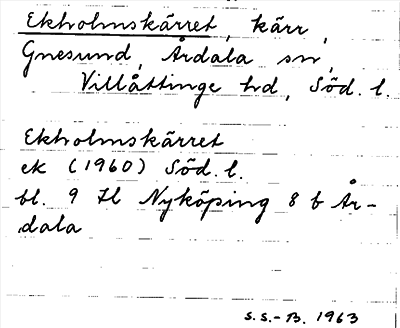 Ekholmskärret, kärr,
Gnesund, Årdala sn,
Villåttinge hd, Söd. l.
Ekholmskärret
ek (1960) Söd. l.
bl. 9 Il Nyköping 8 b År-
dala
S.S.-B. 1963